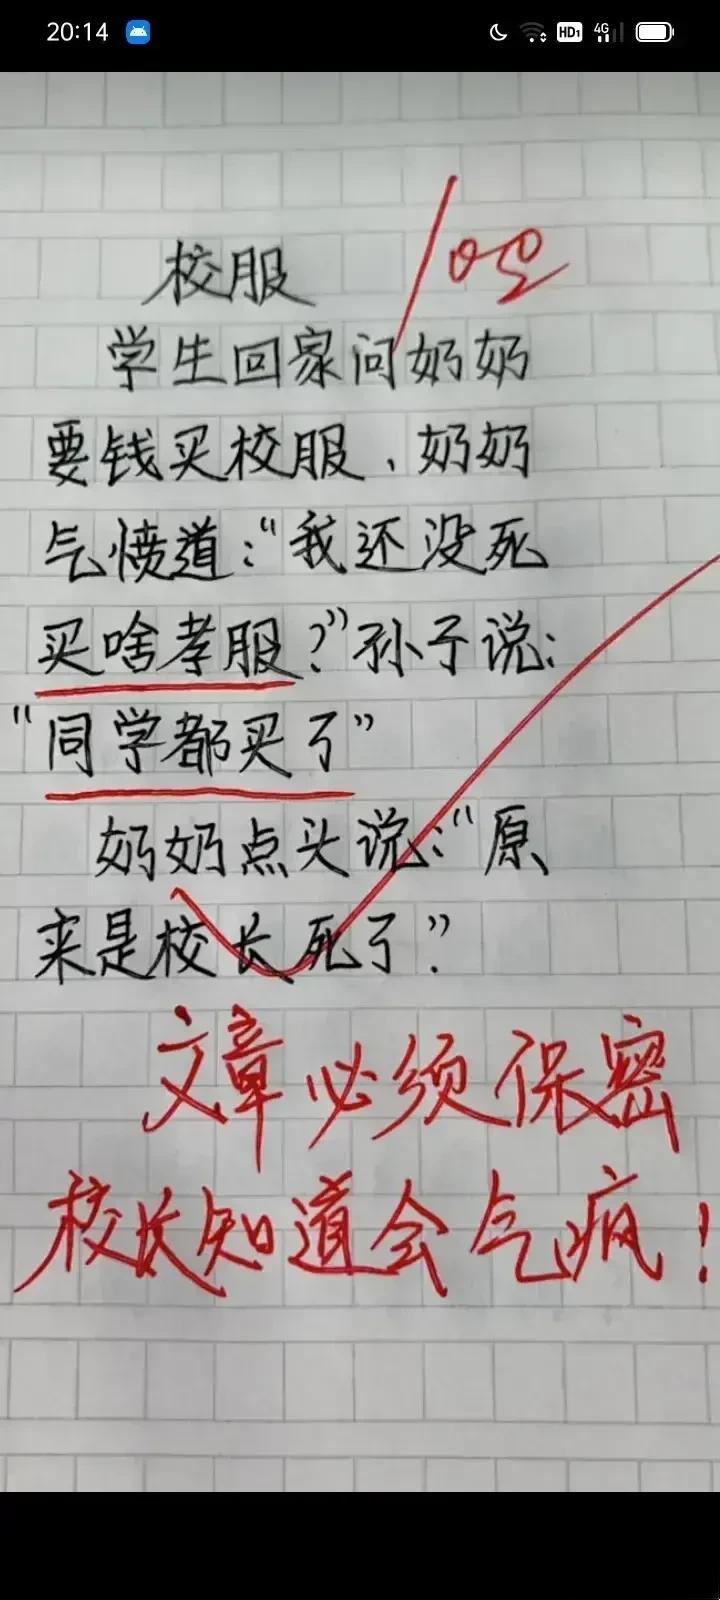 20:14
HD1 4G
校服
100
学生回家问奶奶
要钱买校服,奶奶
气愤道:“我还没死
买啥孝服?”孙子说:
“同学都买了”
奶奶点头说:“原
来是校长死了”
文章必须保密
校长知道会气疯!